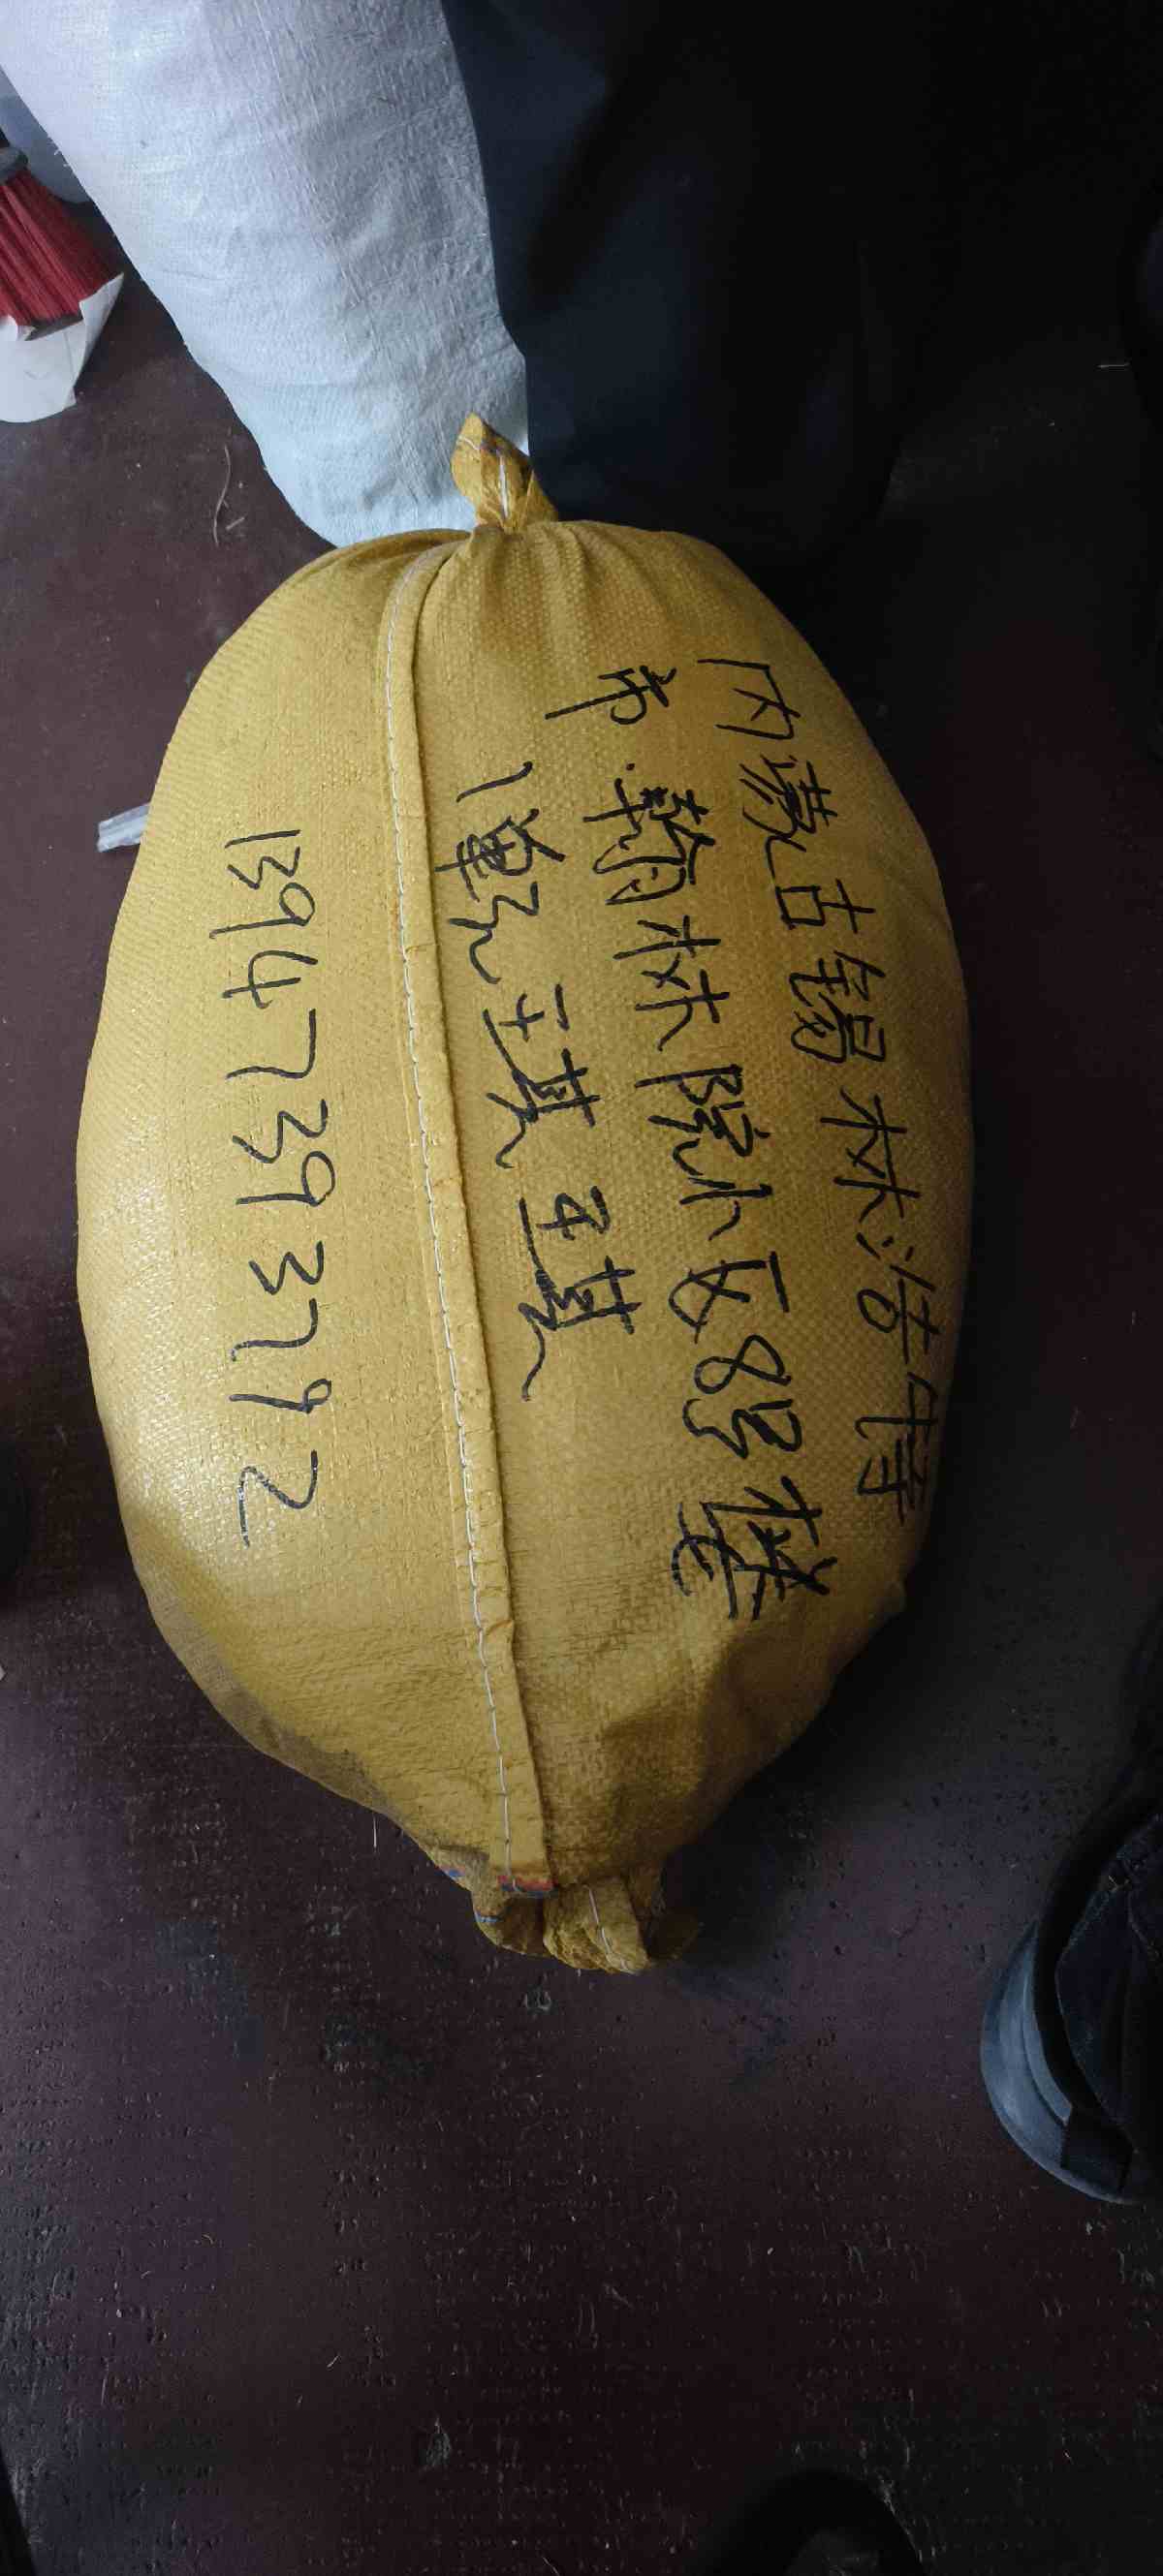 内蒙古锡林浩特
市.翰林院小区8号楼
1单元 王其 王其
13947393792